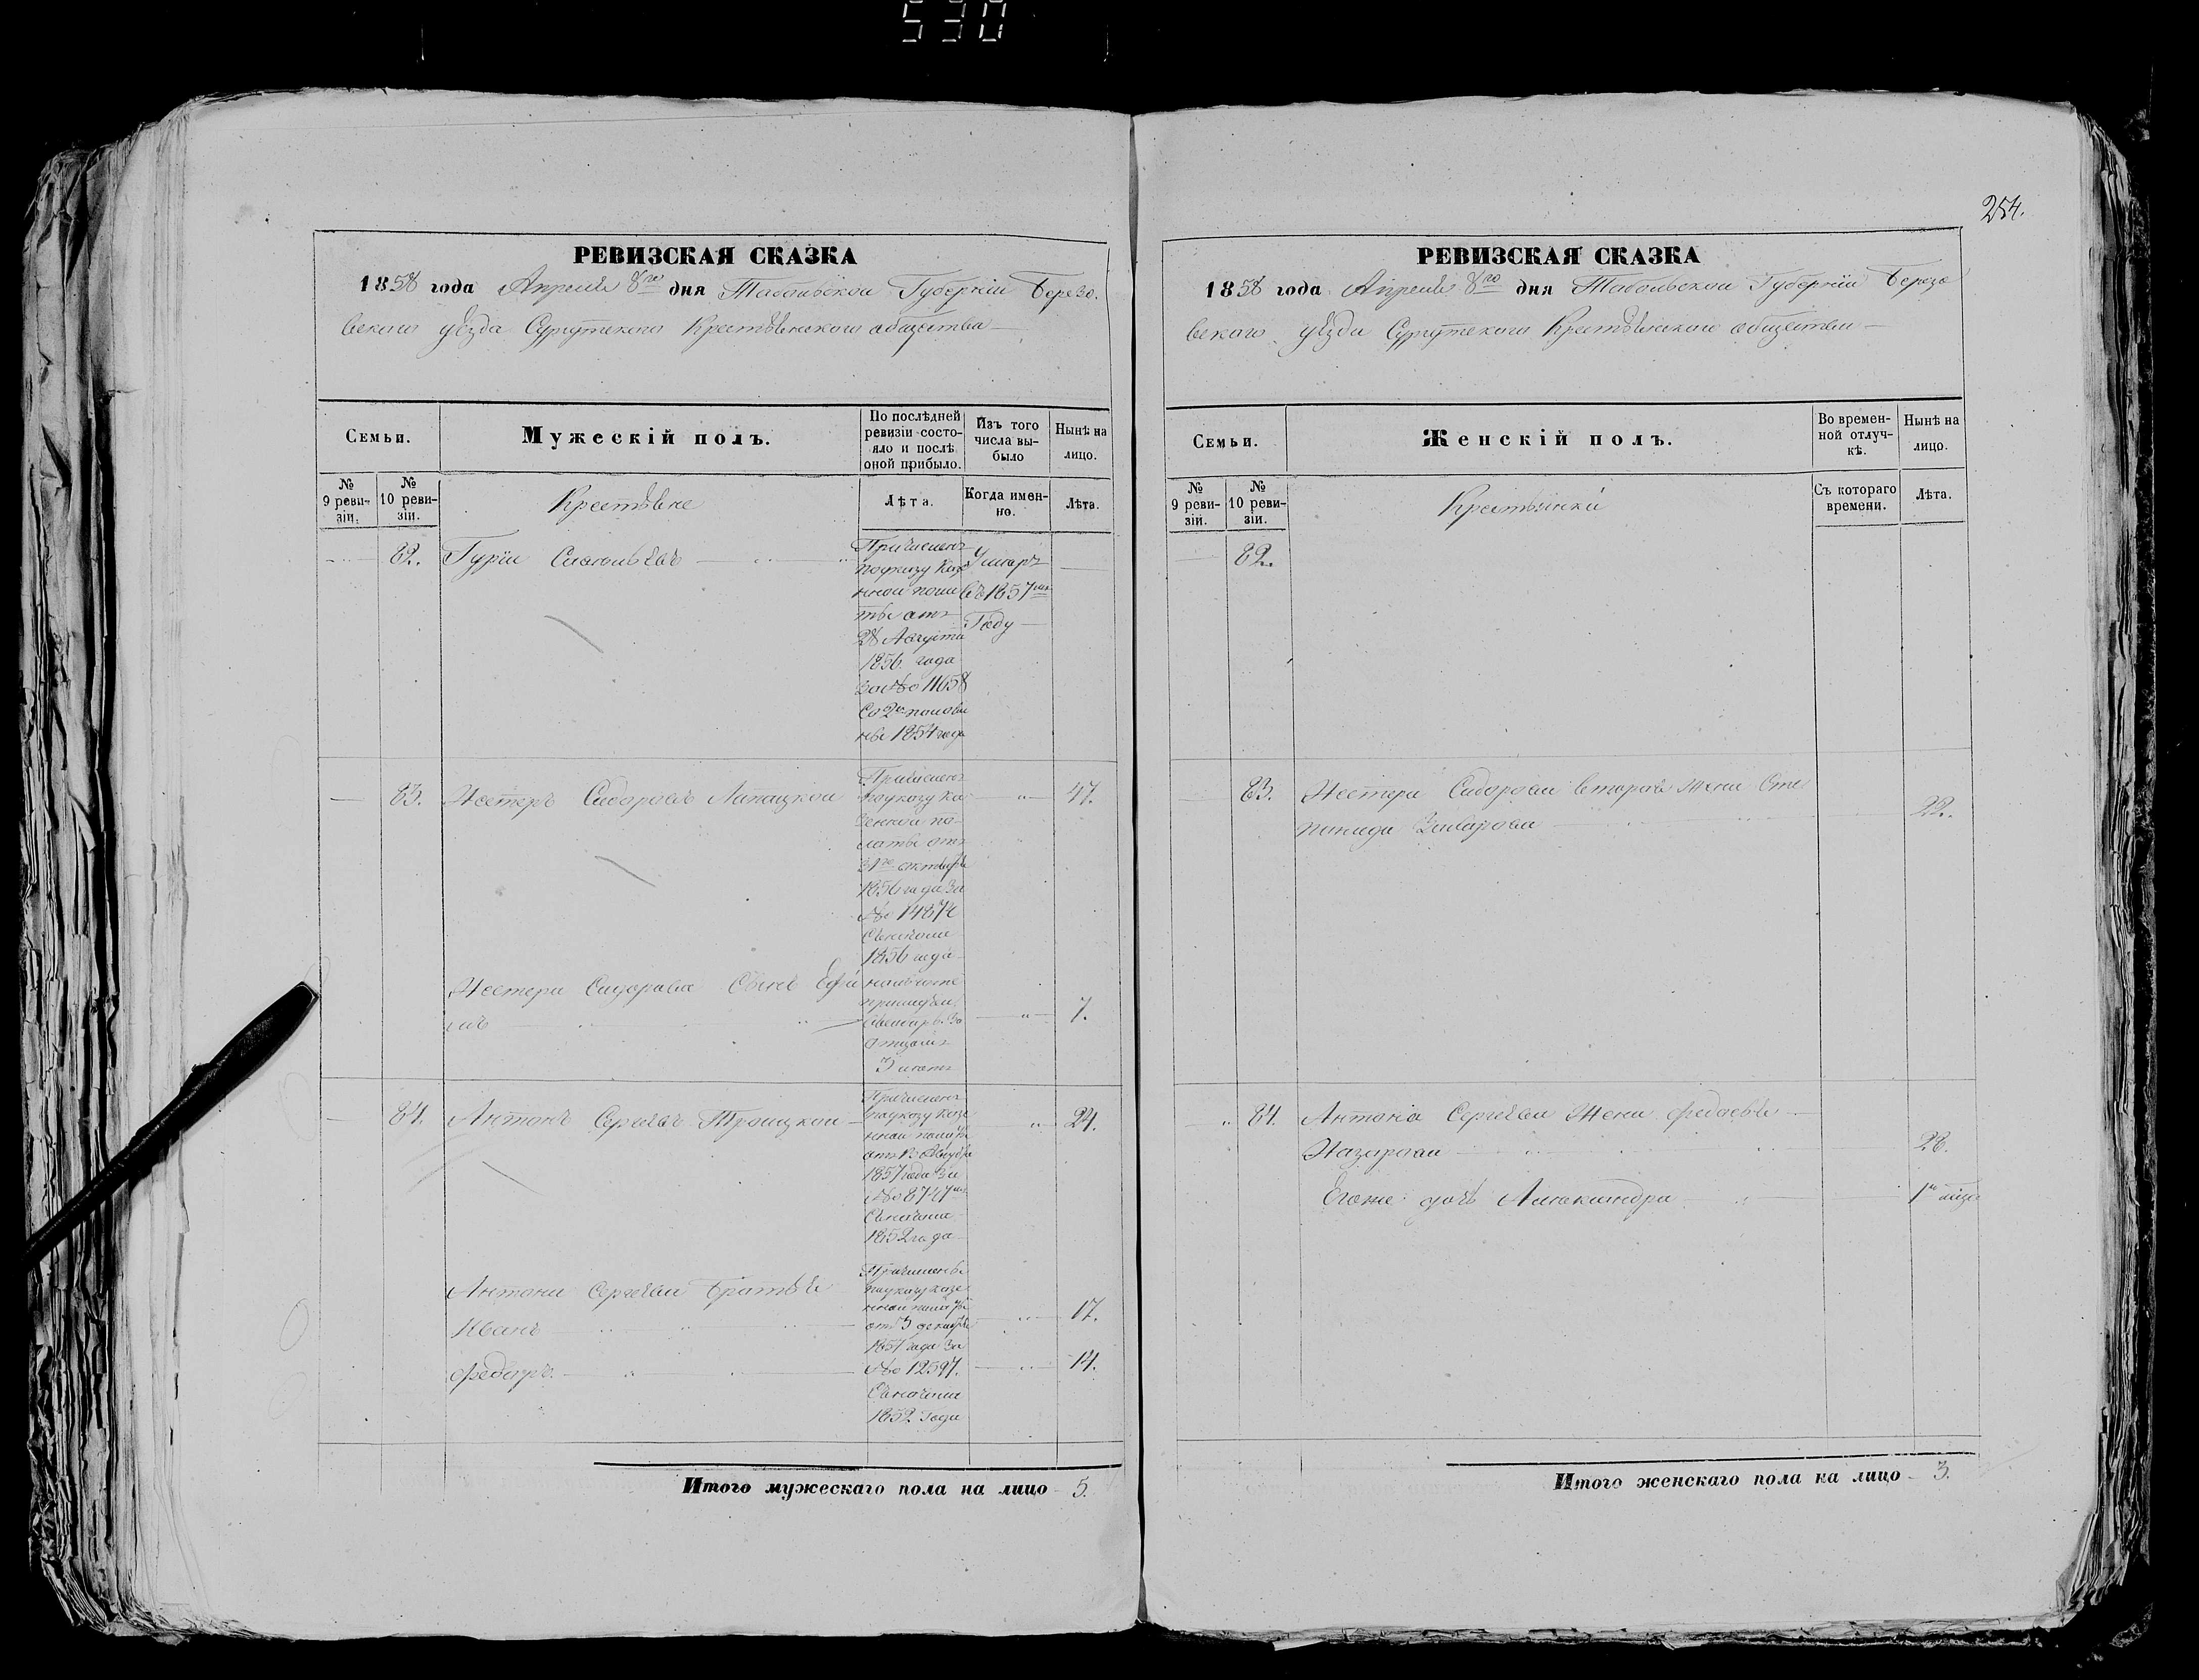 530
254.
РЕВИЗСКАЯ СКАЗКА
1858 года Апреля 8го дня Табольской Губернiи Березо-
вскаго уѣзда Сургутскаго Крестьянскаго общества
Семьи.
Мужескiй полъ.
По послѣдней ревизiи состо-
яло и послѣ
оной прибыло.
Изъ того
числа вы-
было
Нынѣ на
лицо.
№
9 реви-
зiи.
№
10 реви-
зiи.
Крестьяне
Лѣта.
Когда имен-
но.
Лѣта.
82. Гурiй
Причисленъ
по указу Казе
нной пала
ты отъ
28 Августа
1856 года
за № 11658
со 2й полови
ны 1854 года
Умеръ
въ 1857мъ
Году
83. Нестеръ Сидоровъ Лапацкой
47.
Причисленъ
по указу ка
зенной па-
латы отъ
31го октября
1856 года за
№ 14874
Съ начала
1856 года
Нестера Сидорова Сынъ Ефи
мъ
7.
3 лѣтъ
84. Антонъ Сергѣевъ Троицкой
24.
Причисленъ
по указу казе
нной палаты
1857 года за
№ 8727мъ
Съ начала
1852 года
Антона Сергѣева братья
Иванъ
17.
Федоръ
14.
Причислены
по указу казе
нной палаты
от 3 декабря
1857 года за
№ 12597.
Съ начала
1852 Года
Итого мужескаго пола на лицо 5.
РЕВИЗСКАЯ СКАЗКА
1858 года Апреля 8го дня Табольской Губернiи Березо
вскаго уѣзда Сургутскаго Крестьянскаго общества
Семьи.
Женскiй полъ.
Во времен-
ной отлуч-
кѣ.
Нынѣ на
лицо.
№
9 реви-
зiи.
№
10 реви-
зiи.
Крестьянки
Съ котораго
времени.
Лѣта.
82.
83. Нестера Сидорова вторая жена Сте
панида
22.
84. Антона Сергѣева Жена Федосья
Назарова
23.
Егоже дочь Александра
Итого женскаго пола на лицо 3.